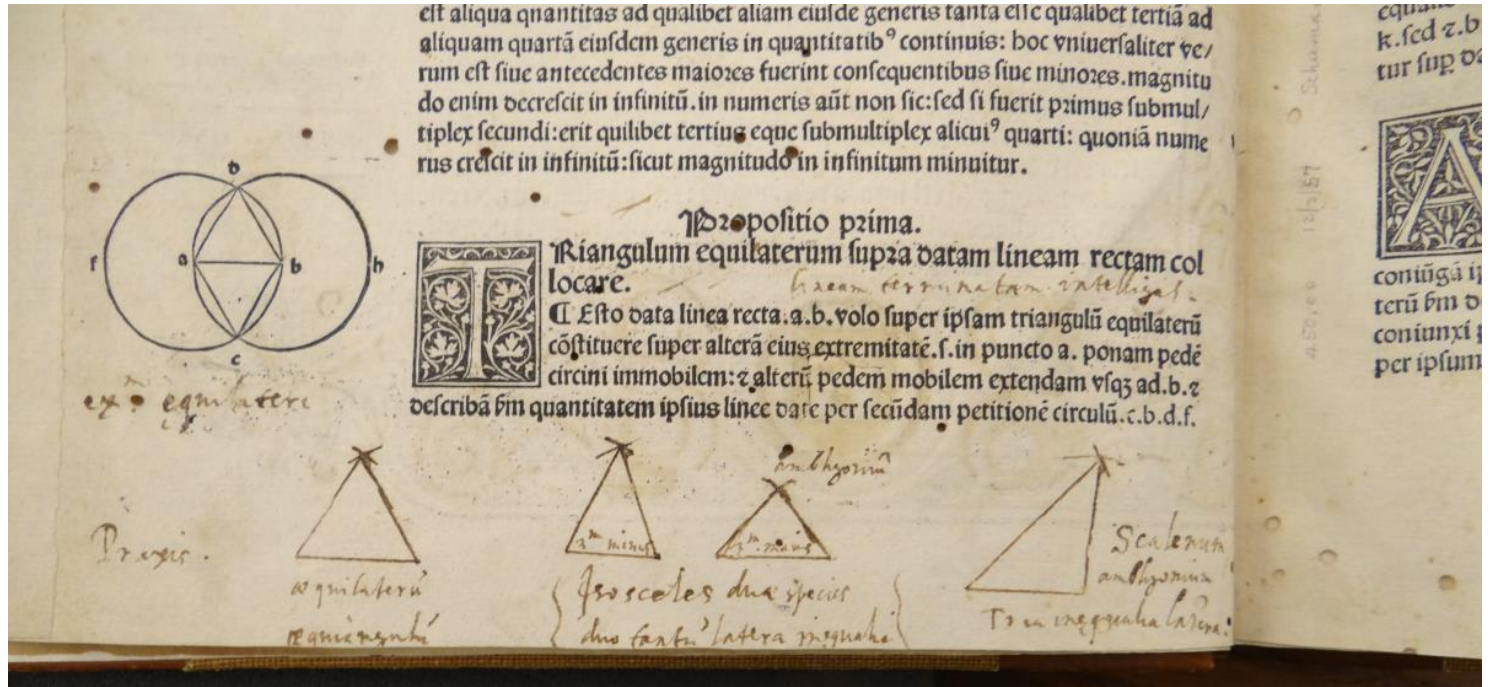 est aliqua quantitas ad qualibet aliam eiusdē generis tanta esse qualibet tertiā ad
aliquam quartā eiusdem generis in quantitatibꝰ continuis: hoc vniuersaliter ve/
rum est siue antecedentes maiores fuerint consequentibus siue minores. magnitu
do enim decrescit in infinitū. in numeris aūt non sic: sed si fuerit primus submul/
tiplex secundi: erit quilibet tertius eque submultiplex alicuiꝰ quarti: quoniā nume
rus crescit in infinitū: sicut magnitudo in infinitum minuitur.
Propositio prima.
TRiangulum equilaterum supra datam lineam rectam col
locare.
lineam terminatam intelligas.
¶ Esto data linea recta .a.b. volo super ipsam triangulū equilaterū
cōstituere super alterā eius extremitatē .s. in puncto a. ponam pedē
circini immobilem: ⁊ alterū pedem mobilem extendam vsqꝫ ad .b. ⁊
describā ẜm quantitatem ipsius linee date per secūdam petitionē circulū .c.b.d.f.
d
f a b h
c
equilateri
Praxis.
æquilaterū
æquiangulū
minus
maius
Isosceles duæ species
duo tantū latera inequalia
Scalenum
Tria inequalia latera
k. sed ⁊ .b
tur sup
A
coniūga
terū ẜm
coniunxi
per ipsum